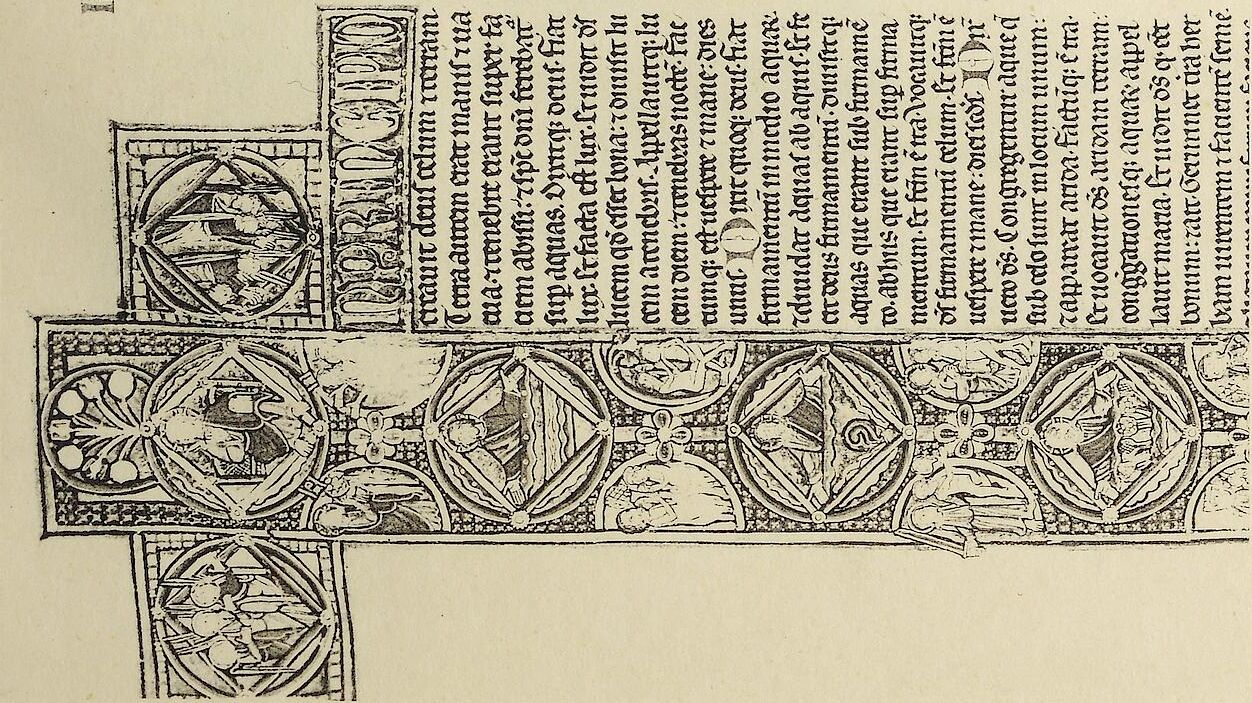 IN PRINCIPIO
creauit deus celum ⁊ terram
Terra autem erat inanis ⁊ ua
cua. ⁊ tenebre erant super fa
ciem abissi. ⁊ sp̄c dn̄i ferebat̄
sup̄ aquas. Dixitq; deus. Fiat
lux. Et facta est lux. Et uidit ds̄
lucem qd̄ esset bona: ⁊ diuisit lu
cem a tenebris. Appellauitq; lu
cem diem: ⁊ tenebras noctē. Fac
tumq; est uespere ⁊ mane. dies
unus. Dixit quoq; deus. fiat
firmamentū in medio aquaꝝ.
⁊ diuidat aquas ab aquis. Et fe
cit deus firmamentū. diuisitq;
aquas que erant sub firmamē
to ab his que erant sup̄ firma
mentum. Et fc̄m ē ita. Vocauitq;
ds̄ firmamentū celum. Et fc̄m ē
uespere ⁊ mane. dies scd̄s. Dixit
uero ds̄. Congregentur aque q̄
sub celo sunt in locum unum:
⁊ appareat arida. Factūq; ē ita.
Et uocauit ds̄ aridam terram:
congregationesq; aquaꝝ appel
lauit maria. Et uidit ds̄ q̄ eēt
bonum: ⁊ ait. Germinet tr̄a her
bam uirentem ⁊ facientē semē.